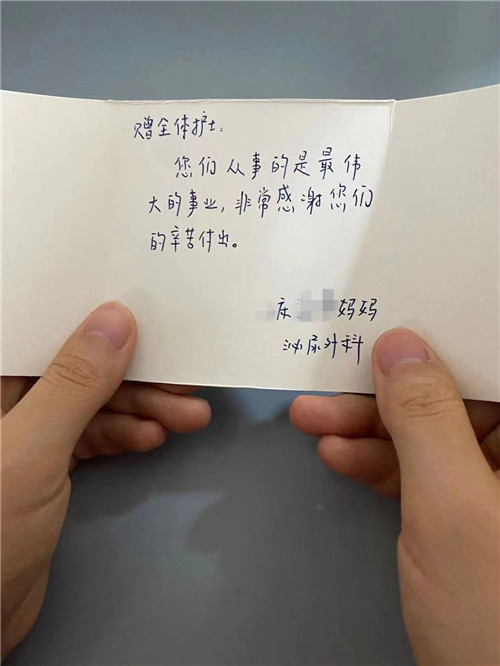 赠全体护士:
您们从事的是最伟
大的事业,非常感谢您们
的辛苦付出。
妈妈
泌尿外科